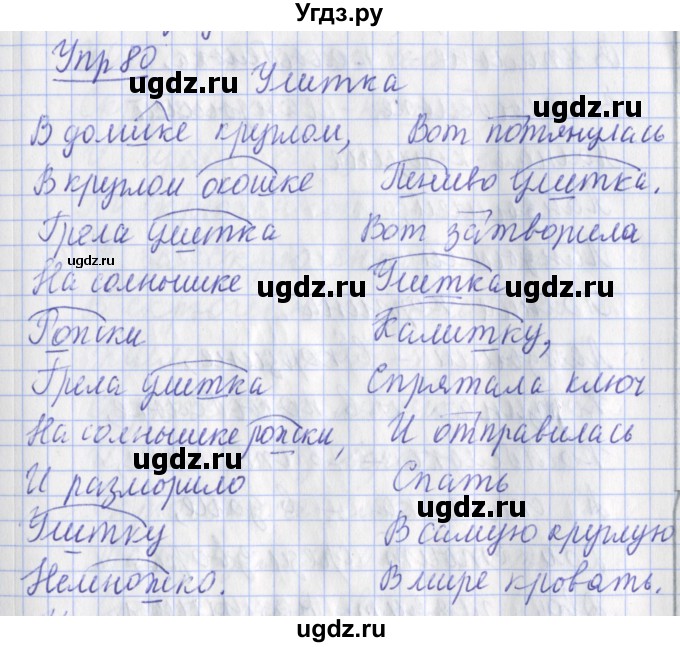 Угдз.ру
Упр 80
Улитка
В домике круглом,
В круглом окошке
Грела улитка
На солнышке
Рожки
Грела улитка
На солнышке рожки,
И разморило
Улитку
Немножко.
Вот потянулась
Лениво улитка.
Вот затворила
Улитка
Калитку,
Спрятала ключ
И отправилась
Спать
В самую круглую
В мире кровать.
ugdz.ru
ugdz.ru
ugdz.ru
ugdz.ru
ugdz.ru
ugdz.ru
ugdz.ru
ugdz.ru
ugdz.ru
ugdz.ru
ugdz.ru
ugdz.ru